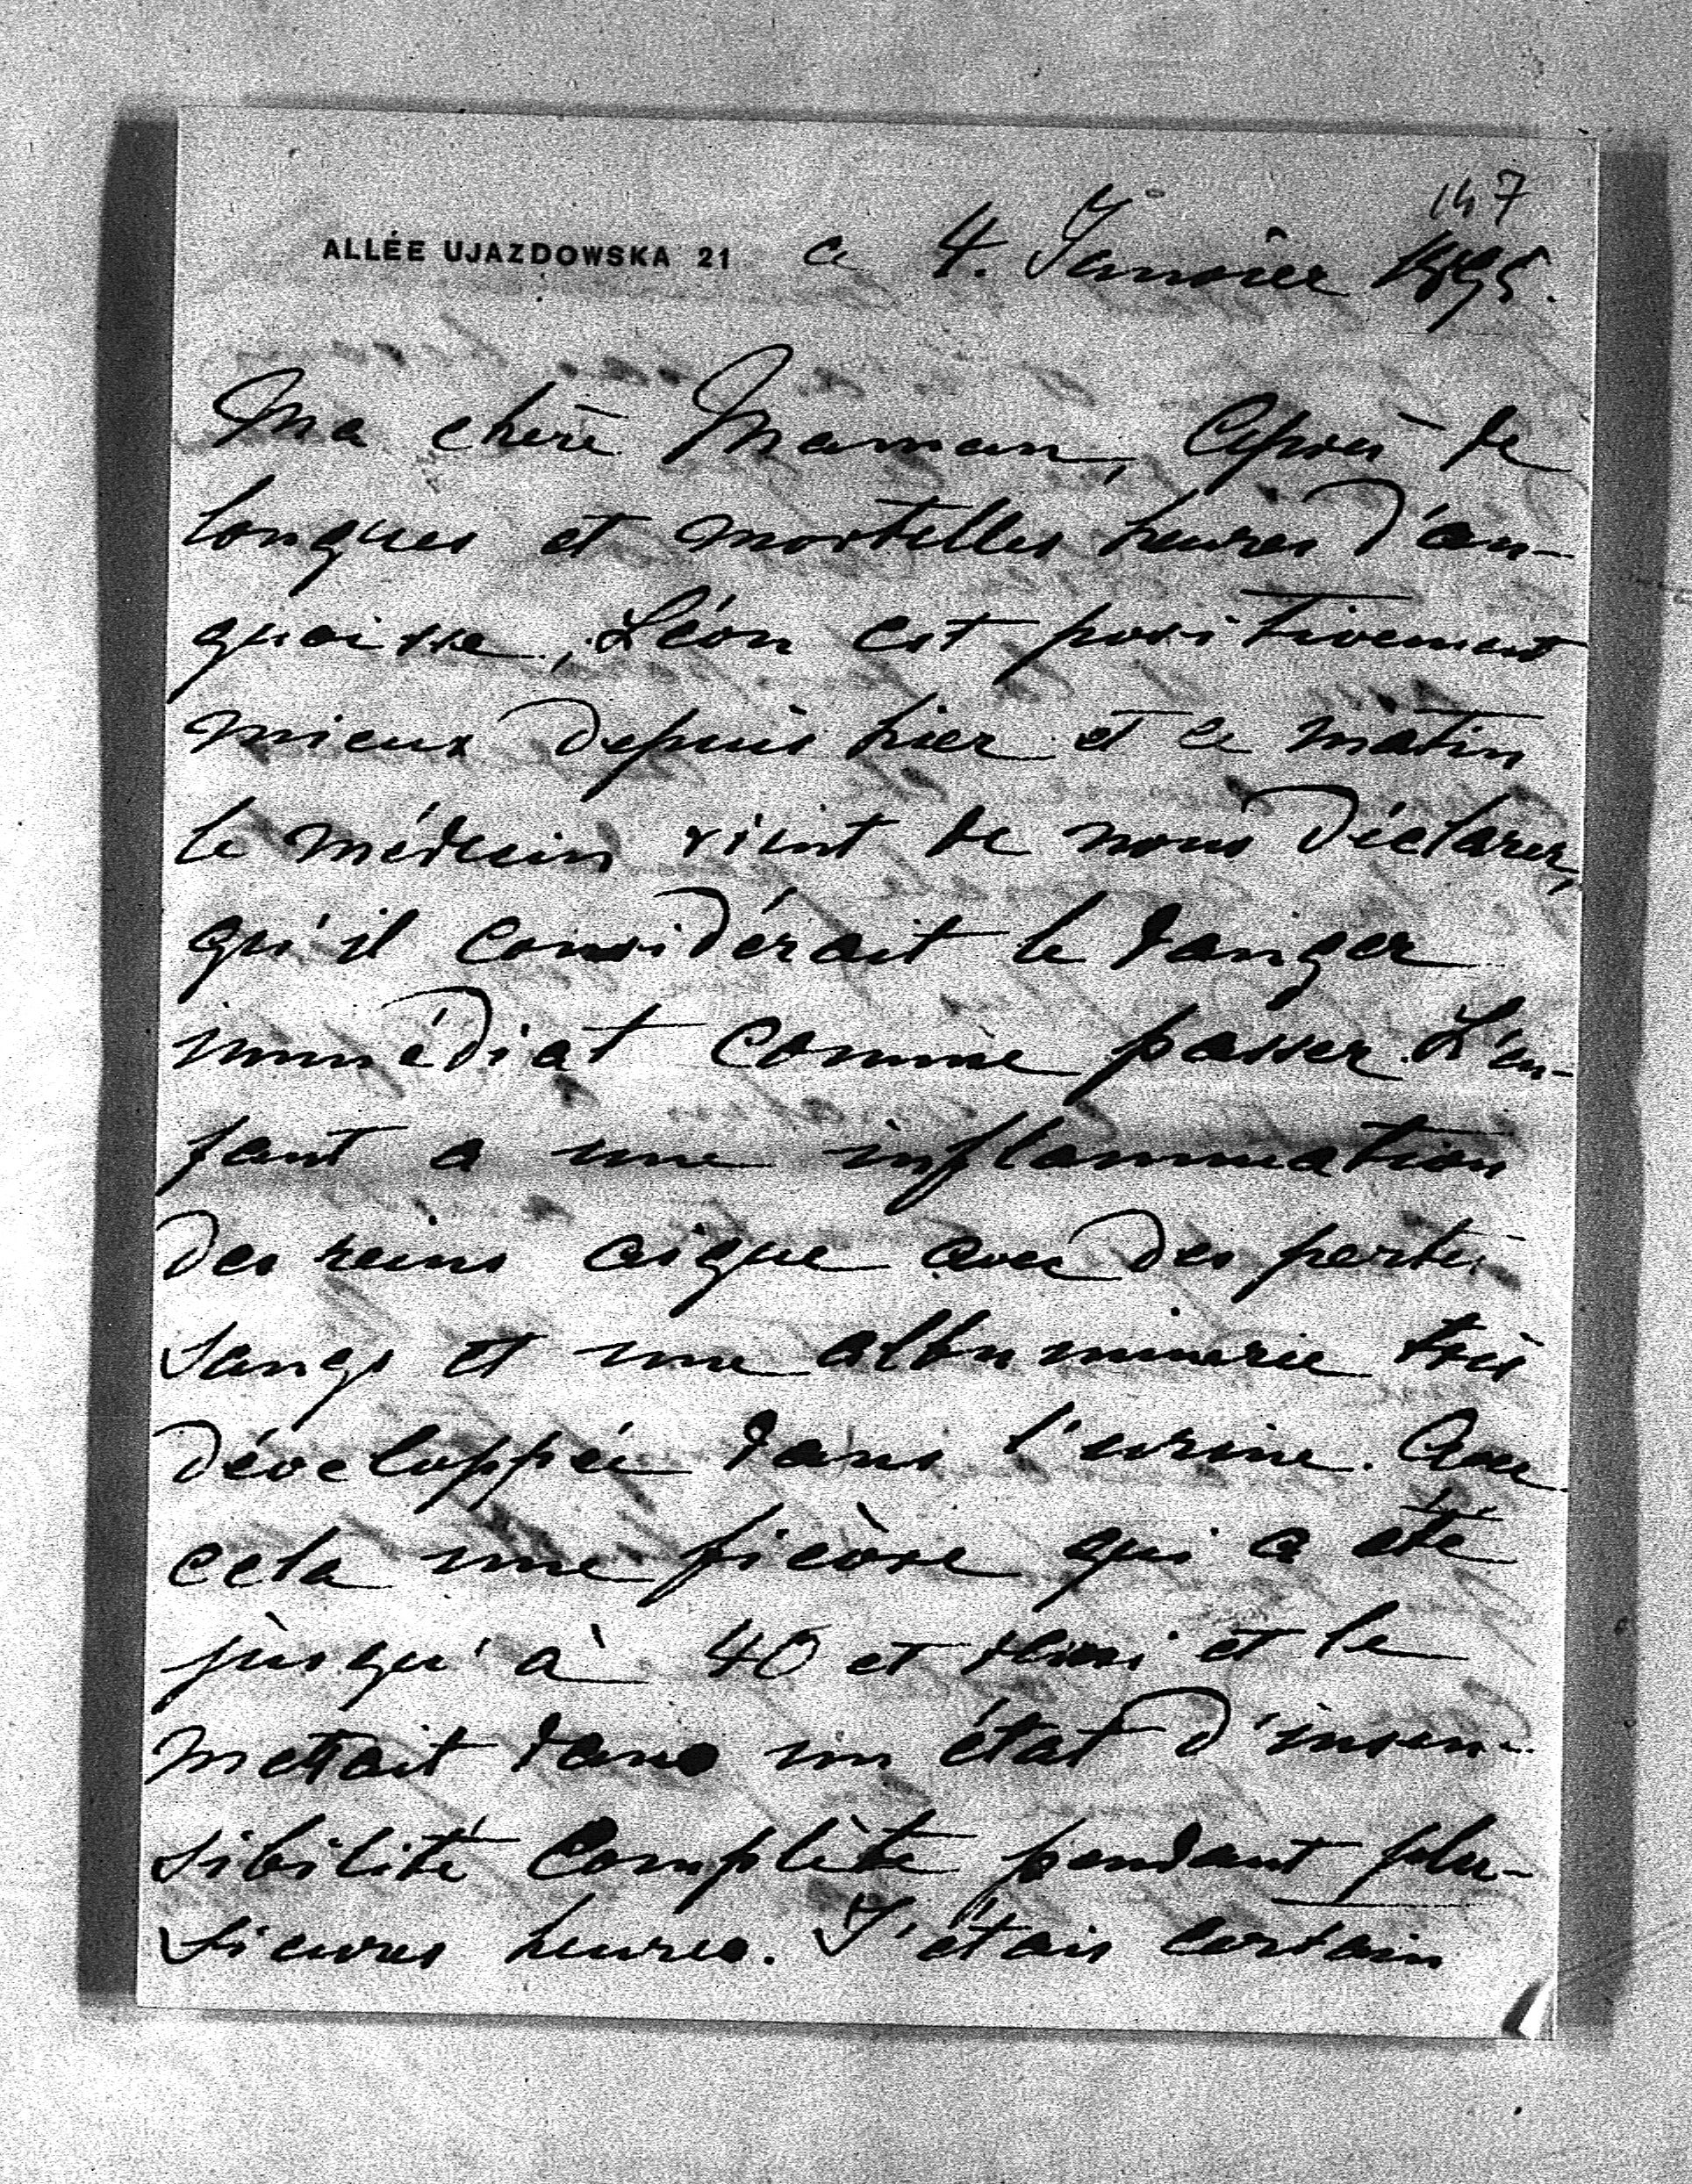 147
ALLÉE UJAZDOWSKA 21 ce 4. Janvier 1895.
Ma chère Maman, Après de
longues et mortelles heures d'an-
guoisse, Léon est positivement
mieux depuis hier et ce matin
le médecin vient de nous déclarer,
qu'il considérait le danger
immédiat comme passer. L'en-
fant a une inflammation
des reins aigue avec des pertes
sangs et une albuminerie très
développée dans l'urine. Avec
cela une fièvre qui a été
jusqu'à 40 et demi et le
mettait dans un état d'insen-
sibilité complète pendant plu-
sieures heures. J'étais certain